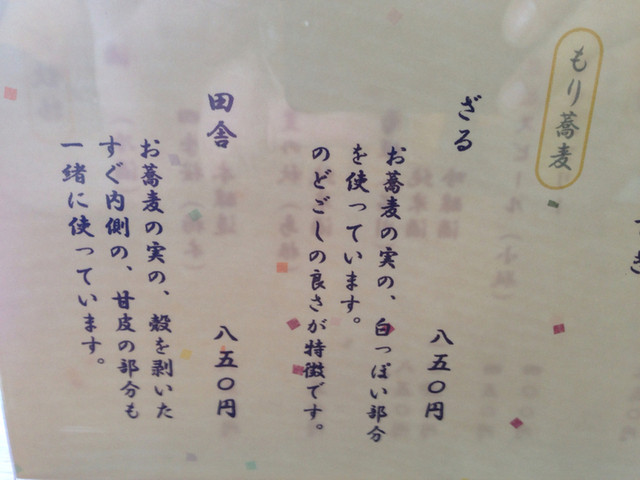 もり蕎麦
ざる
八五〇円
お蕎麦の実の、白っぽい部分
を使っています。
のどごしの良さが特徴です。
田舎
八五〇円
お蕎麦の実の、殻を剥いた
すぐ内側の、甘皮の部分も
一緒に使っています。